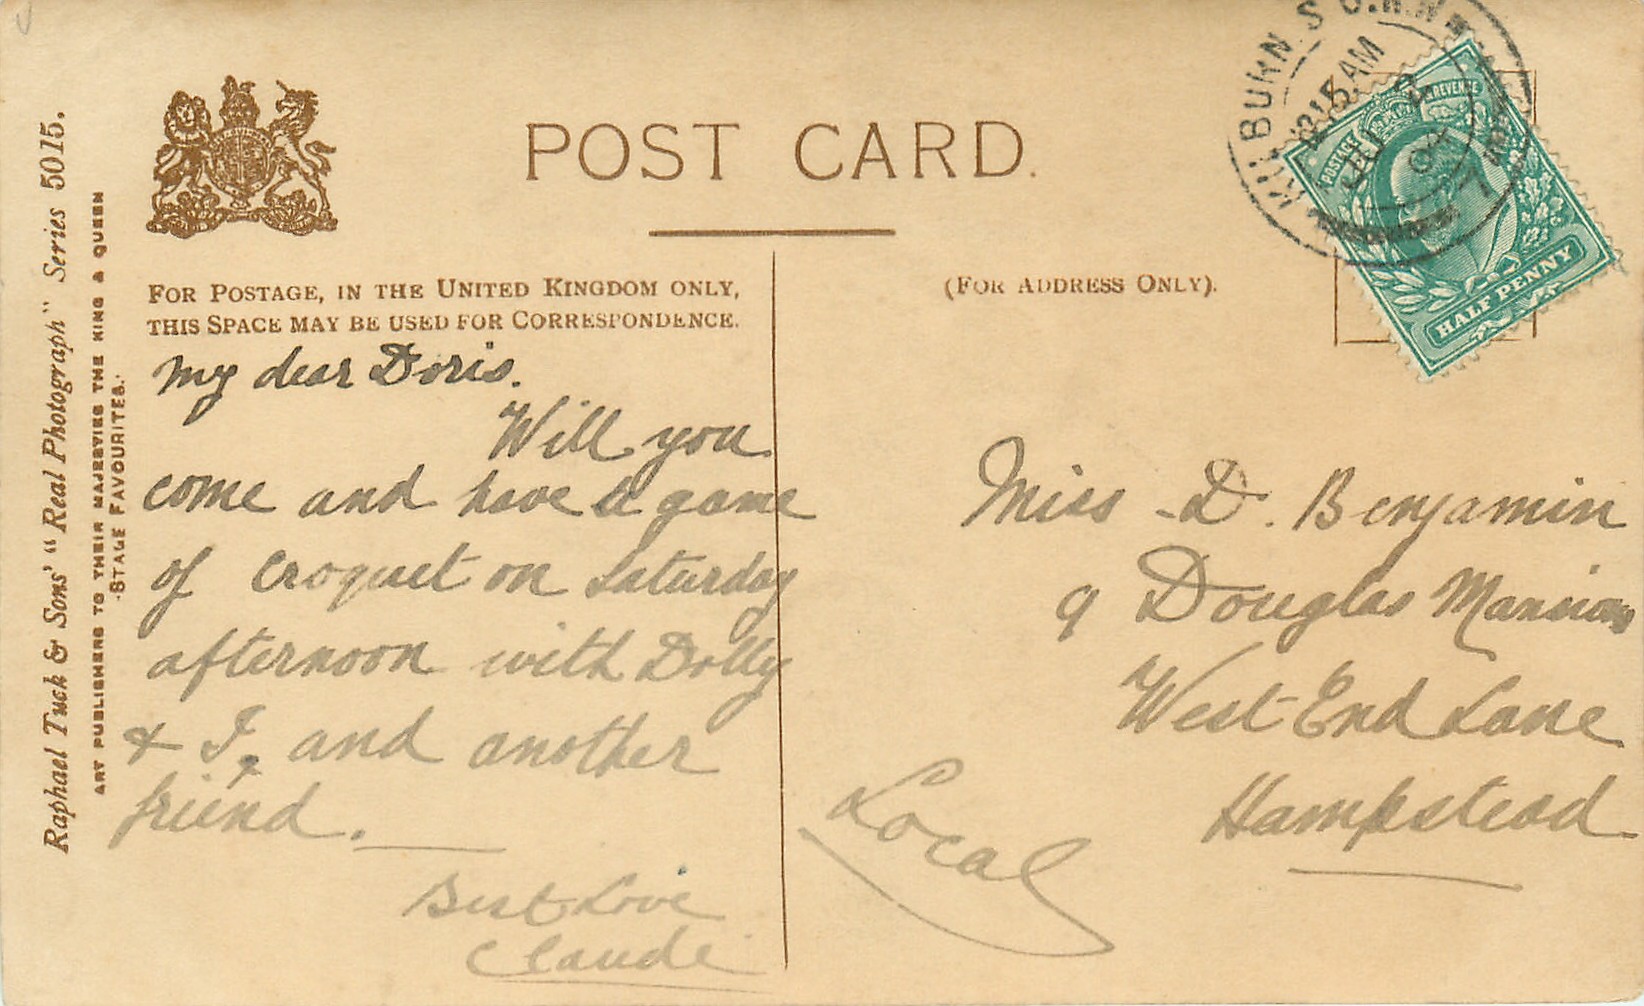 Raphael Tuck & Sons' "Real Photograph" Series 5015.
ART PUBLISHERS TO THEIR MAJESTIES THE KING & QUEEN
"STAGE FAVOURITES."
POST CARD.
FOR POSTAGE, IN THE UNITED KINGDOM ONLY,
THIS SPACE MAY BE USED FOR CORRESPONDENCE.
My dear Doris.
Will you
come and have a game
of croquet on Saturday
afternoon with Dolly
& I, and another
friend.
Best Love
Claude
(FOR ADDRESS ONLY).
Miss D. Benjamin
9 Douglas Mansions
West End Lane
Hampstead
Local
KILBURN S.O.N.W
12 15 AM
JU
04
POSTAGE
REVENUE
HALF PENNY